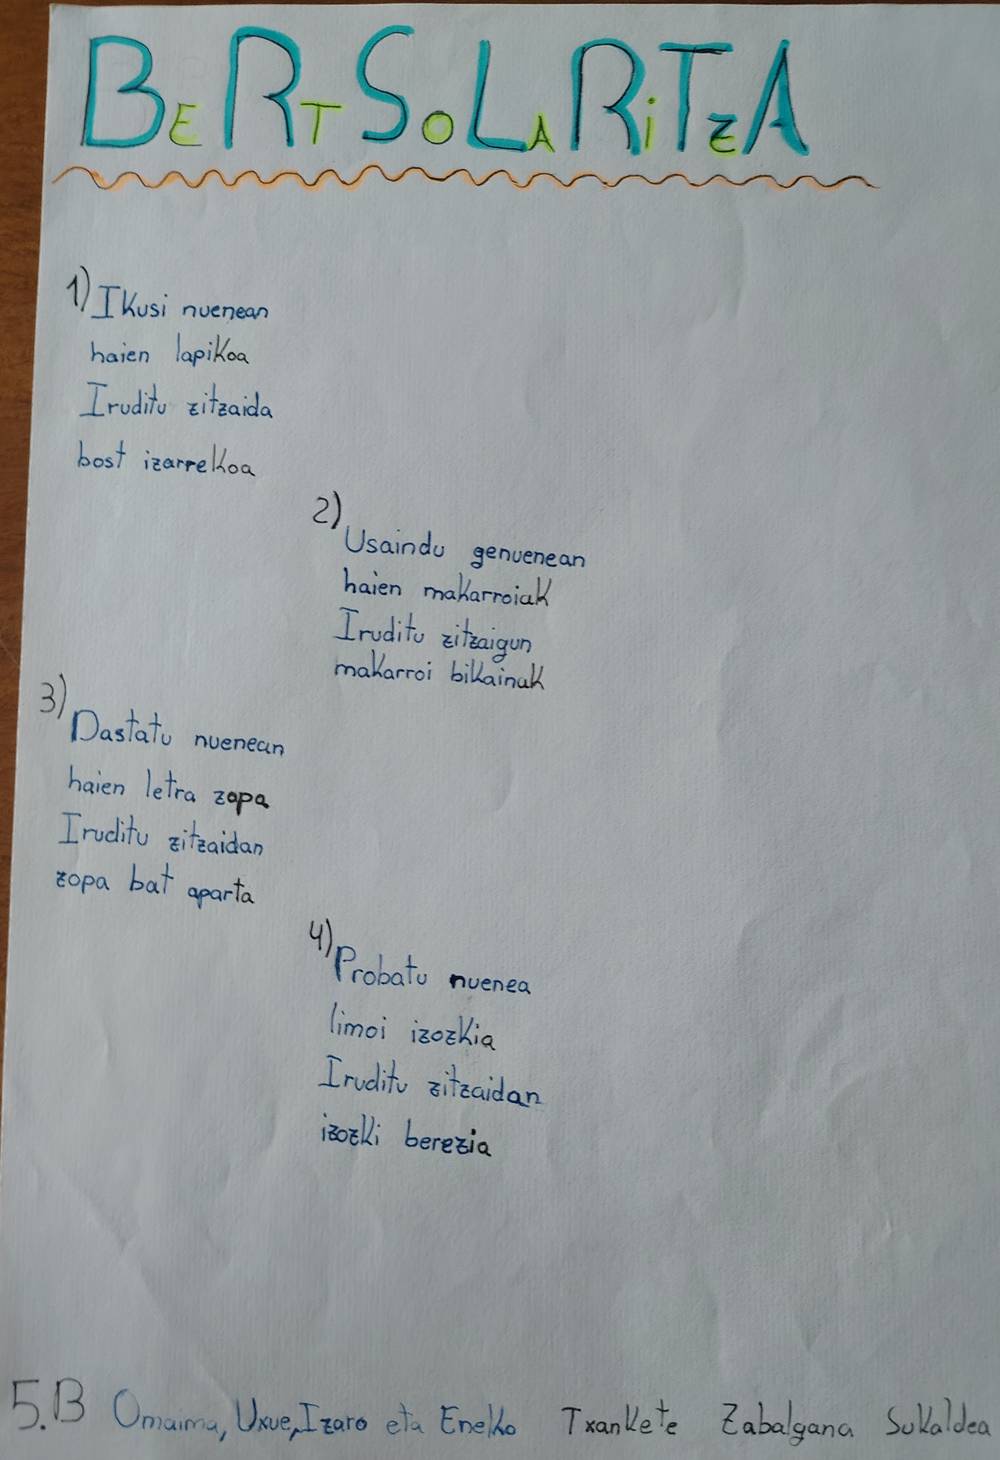 BERTSOLARiTzA
1) Ikusi nuenean
haien lapikoa
Iruditu zitzaida
bost izarrekoa
2) Usaindu genuenean
haien makarroiak
Iruditu zitzaigun
makarroi bikainak
3) Dastatu nuenean
haien letra zopa
Iruditu zitzaidan
zopa bat aparta
4) Probatu nuenea
limoi izozkia
Iruditu zitzaidan
izozki berezia
5.B Omaima, Uxue, Izaro eta Eneko Txankete Zabalgana Sukaldea